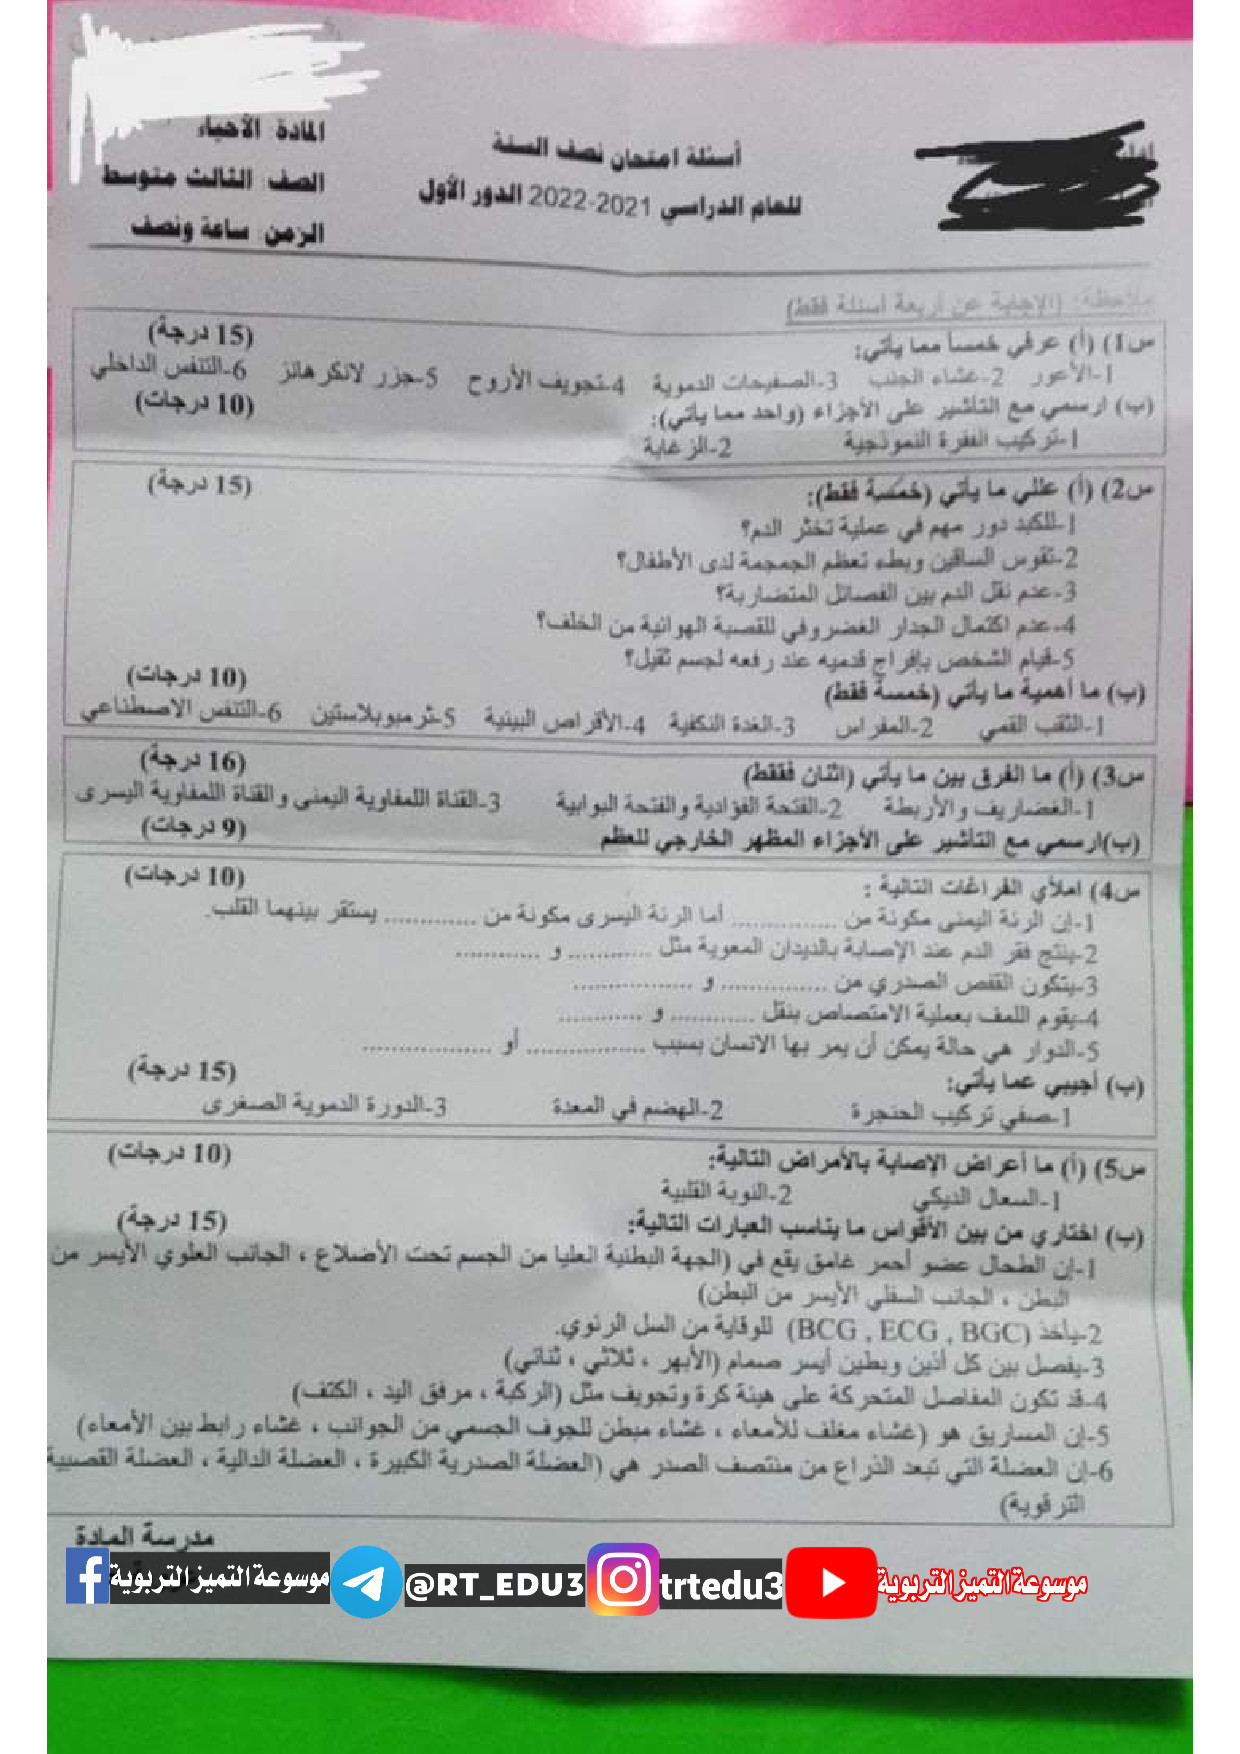 أسئلة امتحان نصف السنة
للعام الدراسي 2021-2022 الدور الأول
المادة: الأحياء
الصف: الثالث متوسط
الزمن: ساعة ونصف
ملاحظة: (الإجابة عن أربعة أسئلة فقط)
س1) (أ) عرفي خمساً مما يأتي: (15 درجة)
1-الأعور 2-غشاء الجنب 3-الصفيحات الدموية 4-تجويف الأروح 5-جزر لانكرهانز 6-التنفس الداخلي
(ب) ارسمي مع التأشير على الأجزاء (واحد مما يأتي): (10 درجات)
1-تركيب الفقرة النموذجية 2-الزغابة
س2) (أ) عللي ما يأتي (خمسة فقط): (15 درجة)
1-للكبد دور مهم في عملية تخثر الدم؟
2-تقوس الساقين وبطء تعظم الجمجمة لدى الأطفال؟
3-عدم نقل الدم بين الفصائل المتضاربة؟
4-عدم اكتمال الجدار الغضروفي للقصبة الهوائية من الخلف؟
5-قيام الشخص بإفراج قدميه عند رفعه لجسم ثقيل؟
(ب) ما أهمية ما يأتي (خمسة فقط) (10 درجات)
1-الثقب القمي 2-المفراس 3-الغدة النكفية 4-الأقراص البينية 5-ثرمبوبلاستين 6-التنفس الاصطناعي
س3) (أ) ما الفرق بين ما يأتي (اثنان فققط) (16 درجة)
1-الغضاريف والأربطة 2-الفتحة الفؤادية والفتحة البوابية 3-القناة اللمفاوية اليمنى والقناة اللمفاوية اليسرى
(ب)ارسمي مع التأشير على الأجزاء المظهر الخارجي للعظم (9 درجات)
س4) املأي الفراغات التالية : (10 درجات)
1-إن الرئة اليمنى مكونة من ............... أما الرئة اليسرى مكونة من ............. يستقر بينهما القلب.
2-ينتج فقر الدم عند الإصابة بالديدان المعوية مثل ............ و ............
3-يتكون القفص الصدري من ............... و ................
4-يقوم اللمف بعملية الامتصاص بنقل ............ و ............
5-الدوار هي حالة يمكن أن يمر بها الانسان بسبب ................. أو ..................
(ب) أجيبي عما يأتي: (15 درجة)
1-صفي تركيب الحنجرة 2-الهضم في المعدة 3-الدورة الدموية الصغرى
س5) (أ) ما أعراض الإصابة بالأمراض التالية: (10 درجات)
1-السعال الديكي 2-النوبة القلبية
(ب) اختاري من بين الأقواس ما يناسب العبارات التالية: (15 درجة)
1-إن الطحال عضو أحمر غامق يقع في (الجهة البطنية العليا من الجسم تحت الأضلاع ، الجانب العلوي الأيسر من
البطن ، الجانب السفلي الأيسر من البطن)
2-يأخذ (BCG , ECG , BGC) للوقاية من السل الرئوي.
3-يفصل بين كل أذين وبطين أيسر صمام (الأبهر ، ثلاثي ، ثنائي)
4-قد تكون المفاصل المتحركة على هيئة كرة وتجويف مثل (الركبة ، مرفق اليد ، الكتف)
5-إن المساريق هو (غشاء مغلف للأمعاء ، غشاء مبطن للجوف الجسمي من الجوانب ، غشاء رابط بين الأمعاء)
6-إن العضلة التي تبعد الذراع من منتصف الصدر هي (العضلة الصدرية الكبيرة ، العضلة الدالية ، العضلة القصبية
الترقوية)
مدرسة المادة
موسوعة التميز التربوية @RT_EDU3 trtedu3 موسوعة التميز التربوية